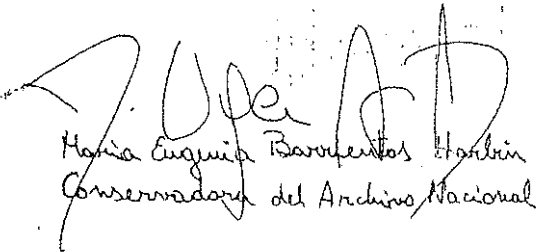 Maria Eugenia Barrientos Harbin
Conservadora del Archivo Nacional